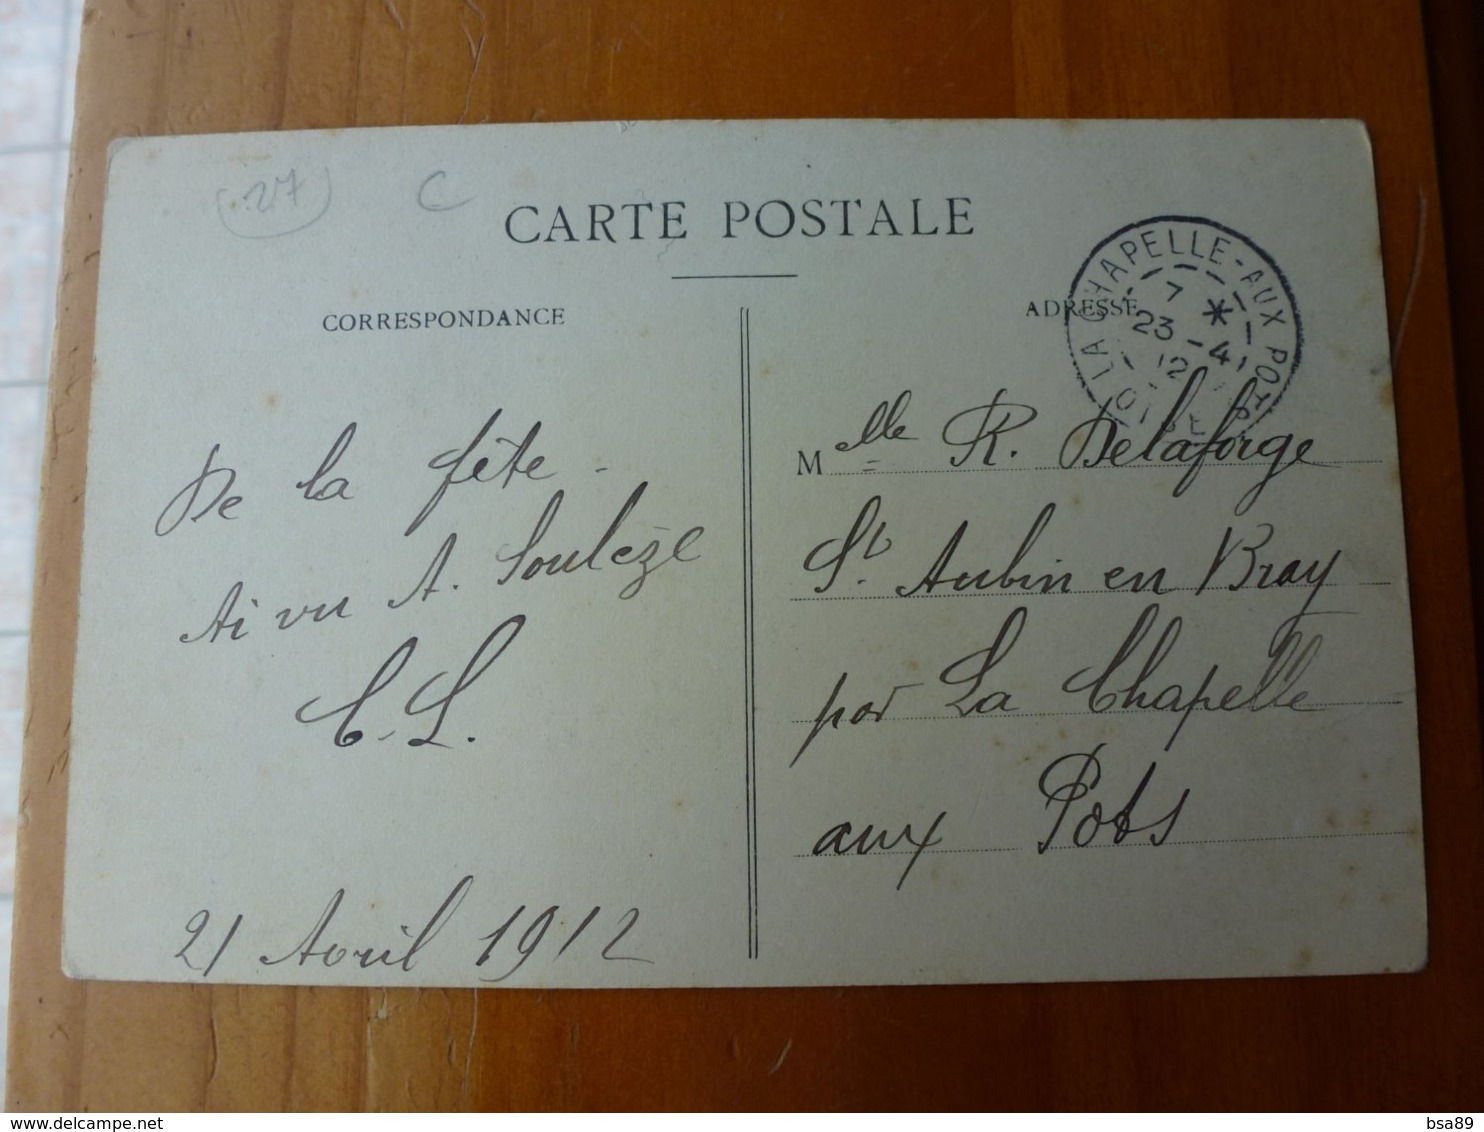 (27)
C
CARTE POSTALE
CORRESPONDANCE
ADRESSE
LA CHAPELLE-AUX POTS
7 *
23 - 4
12
OISE
De la fête -
Ai vu A. Soulèze
C.L.
21 Avril 1912
Mlle R. Delaforge
St. Aubin en Bray
par La Chapelle
aux Pots
delcampe.net
bsa89